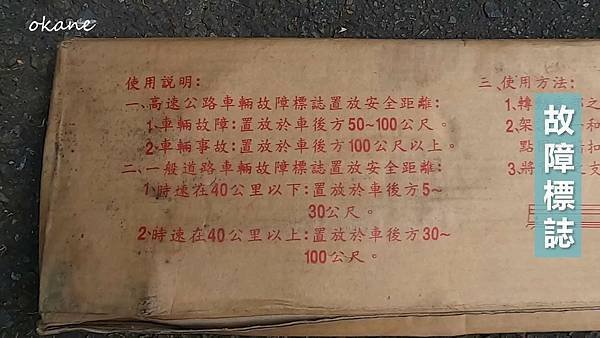 okane
使用說明:
一、高速公路車輛故障標誌置放安全距離:
1、車輛故障:置放於車後方50~100公尺。
2、車輛事故:置放於車後方100公尺以上。
二、一般道路車輛故障標誌置放安全距離:
1、時速在40公里以下:置放於車後方5~
30公尺。
2、時速在40公里以上:置放於車後方30~
100公尺。
三、使用方法:
1、轉
之
2、架
和
點
扣
3、將
支
故障標誌